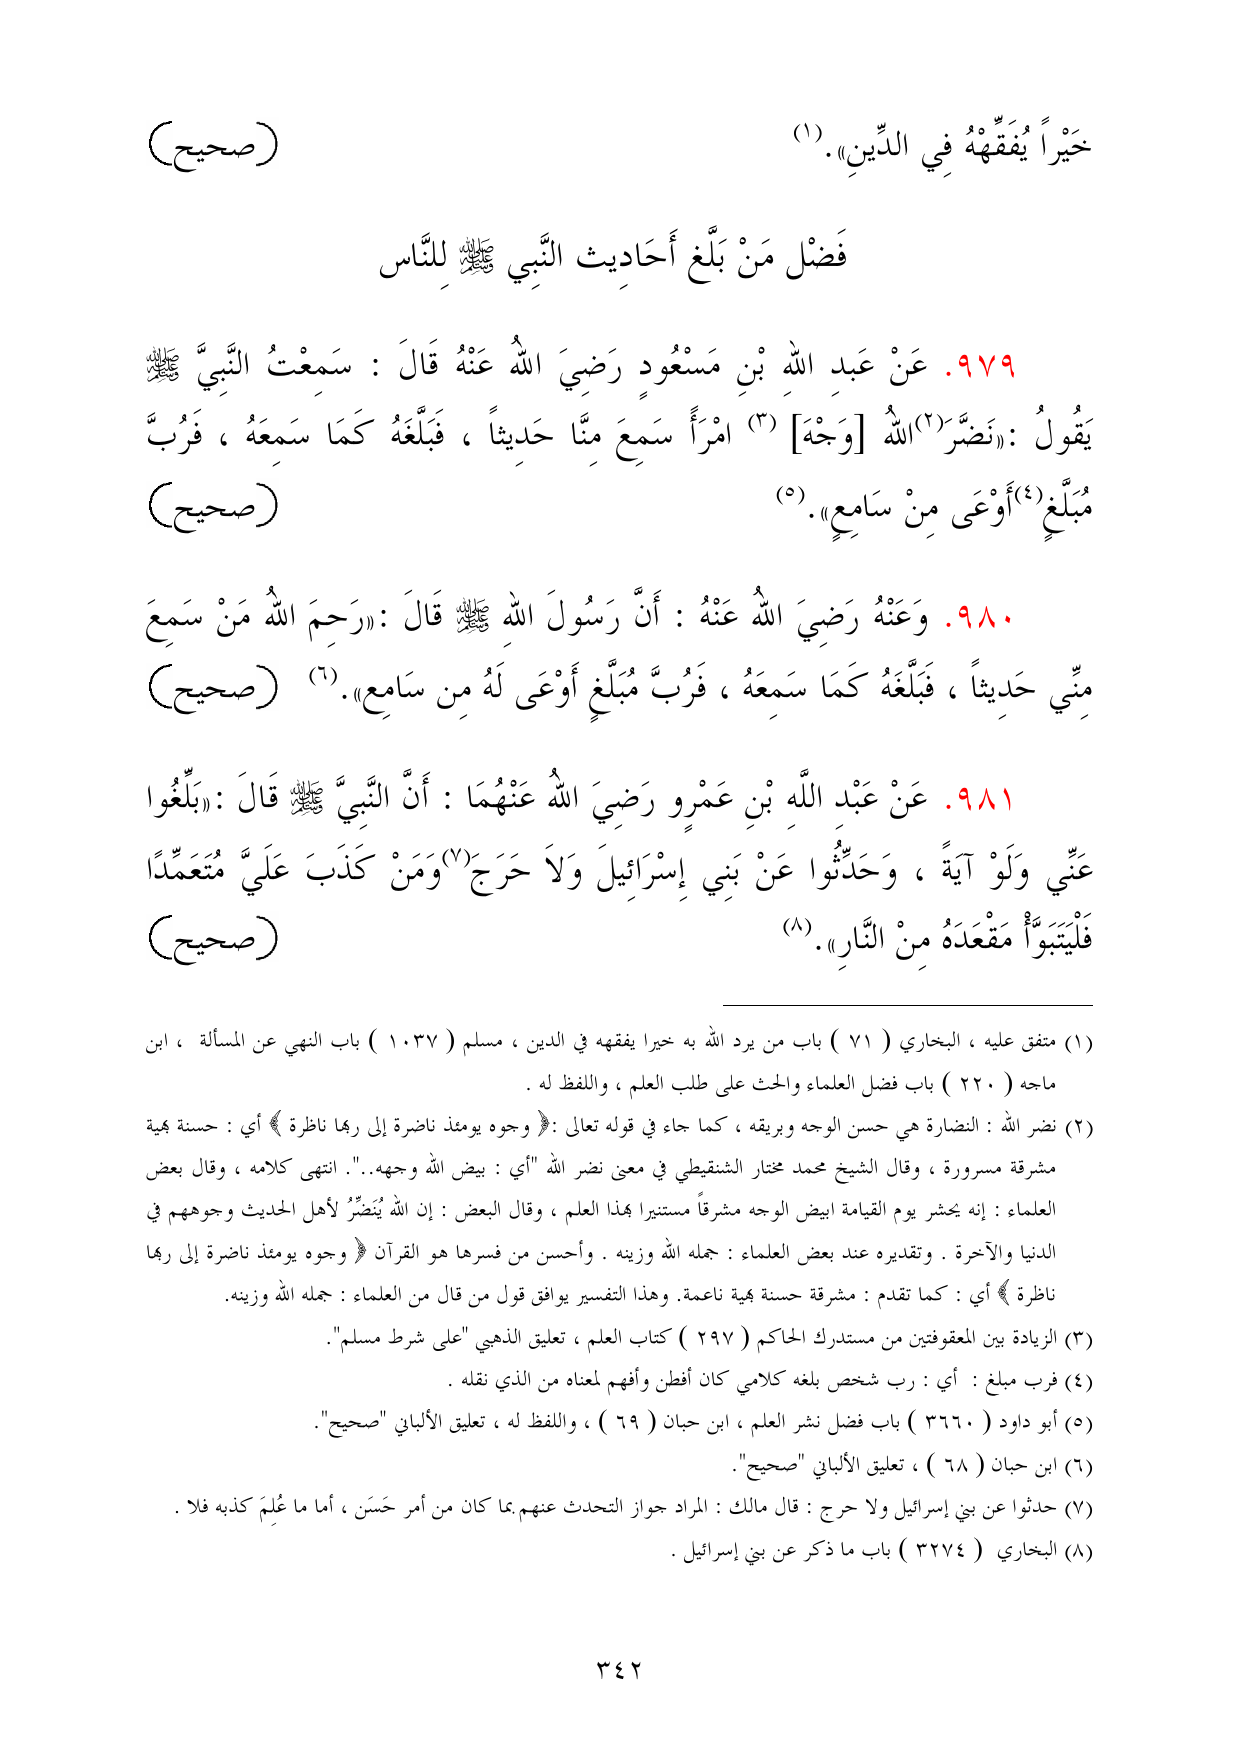 خَيْراً يُفَقِّهْهُ فِي الدِّينِ».(١) (صحيح)
فَضْل مَنْ بَلَّغ أَحَادِيث النَّبِي ﷺ لِلنَّاس
٩٧٩. عَنْ عَبدِ اللهِ بْنِ مَسْعُودٍ رَضِيَ اللهُ عَنْهُ قَالَ : سَمِعْتُ النَّبِيَّ ﷺ
يَقُولُ :«نَضَّرَ(٢)اللهُ [وَجْهَ] (٣) امْرَأً سَمِعَ مِنَّا حَدِيثاً ، فَبَلَّغَهُ كَمَا سَمِعَهُ ، فَرُبَّ
مُبَلَّغٍ(٤)أَوْعَى مِنْ سَامِعٍ».(٥) (صحيح)
٩٨٠. وَعَنْهُ رَضِيَ اللهُ عَنْهُ : أَنَّ رَسُولَ اللهِ ﷺ قَالَ :«رَحِمَ اللهُ مَنْ سَمِعَ
مِنِّي حَدِيثاً ، فَبَلَّغَهُ كَمَا سَمِعَهُ ، فَرُبَّ مُبَلَّغٍ أَوْعَى لَهُ مِن سَامِع».(٦) (صحيح)
٩٨١. عَنْ عَبْدِ اللَّهِ بْنِ عَمْرٍو رَضِيَ اللهُ عَنْهُمَا : أَنَّ النَّبِيَّ ﷺ قَالَ :«بَلِّغُوا
عَنِّي وَلَوْ آيَةً ، وَحَدِّثُوا عَنْ بَنِي إِسْرَائِيلَ وَلاَ حَرَجَ(٧)وَمَنْ كَذَبَ عَلَيَّ مُتَعَمِّدًا
فَلْيَتَبَوَّأْ مَقْعَدَهُ مِنْ النَّارِ».(٨) (صحيح)
(١) متفق عليه ، البخاري ( ٧١ ) باب من يرد الله به خيرا يفقهه في الدين ، مسلم ( ١٠٣٧ ) باب النهي عن المسألة ، ابن
ماجه ( ٢٢٠ ) باب فضل العلماء والحث على طلب العلم ، واللفظ له .
(٢) نضر الله : النضارة هي حسن الوجه وبريقه ، كما جاء في قوله تعالى :﴿ وجوه يومئذ ناضرة إلى ربها ناظرة ﴾ أي : حسنة بهية
مشرقة مسرورة ، وقال الشيخ محمد مختار الشنقيطي في معنى نضر الله "أي : بيض الله وجهه..". انتهى كلامه ، وقال بعض
العلماء : إنه يحشر يوم القيامة ابيض الوجه مشرقاً مستنيرا بهذا العلم ، وقال البعض : إن الله يُنَضِّرُ لأهل الحديث وجوههم في
الدنيا والآخرة . وتقديره عند بعض العلماء : جمله الله وزينه . وأحسن من فسرها هو القرآن ﴿ وجوه يومئذ ناضرة إلى ربها
ناظرة ﴾ أي : كما تقدم : مشرقة حسنة بهية ناعمة. وهذا التفسير يوافق قول من قال من العلماء : جمله الله وزينه.
(٣) الزيادة بين المعقوفتين من مستدرك الحاكم ( ٢٩٧ ) كتاب العلم ، تعليق الذهبي "على شرط مسلم".
(٤) فرب مبلغ : أي : رب شخص بلغه كلامي كان أفطن وأفهم لمعناه من الذي نقله .
(٥) أبو داود ( ٣٦٦٠ ) باب فضل نشر العلم ، ابن حبان ( ٦٩ ) ، واللفظ له ، تعليق الألباني "صحيح".
(٦) ابن حبان ( ٦٨ ) ، تعليق الألباني "صحيح".
(٧) حدثوا عن بني إسرائيل ولا حرج : قال مالك : المراد جواز التحدث عنهم بما كان من أمر حَسَن ، أما ما عُلِمَ كذبه فلا .
(٨) البخاري ( ٣٢٧٤ ) باب ما ذكر عن بني إسرائيل .
٣٤٢